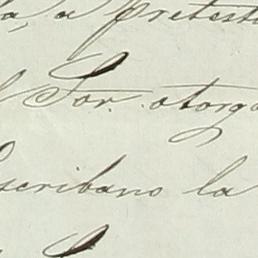 a, a pretest
Sor. otorga
scribano la